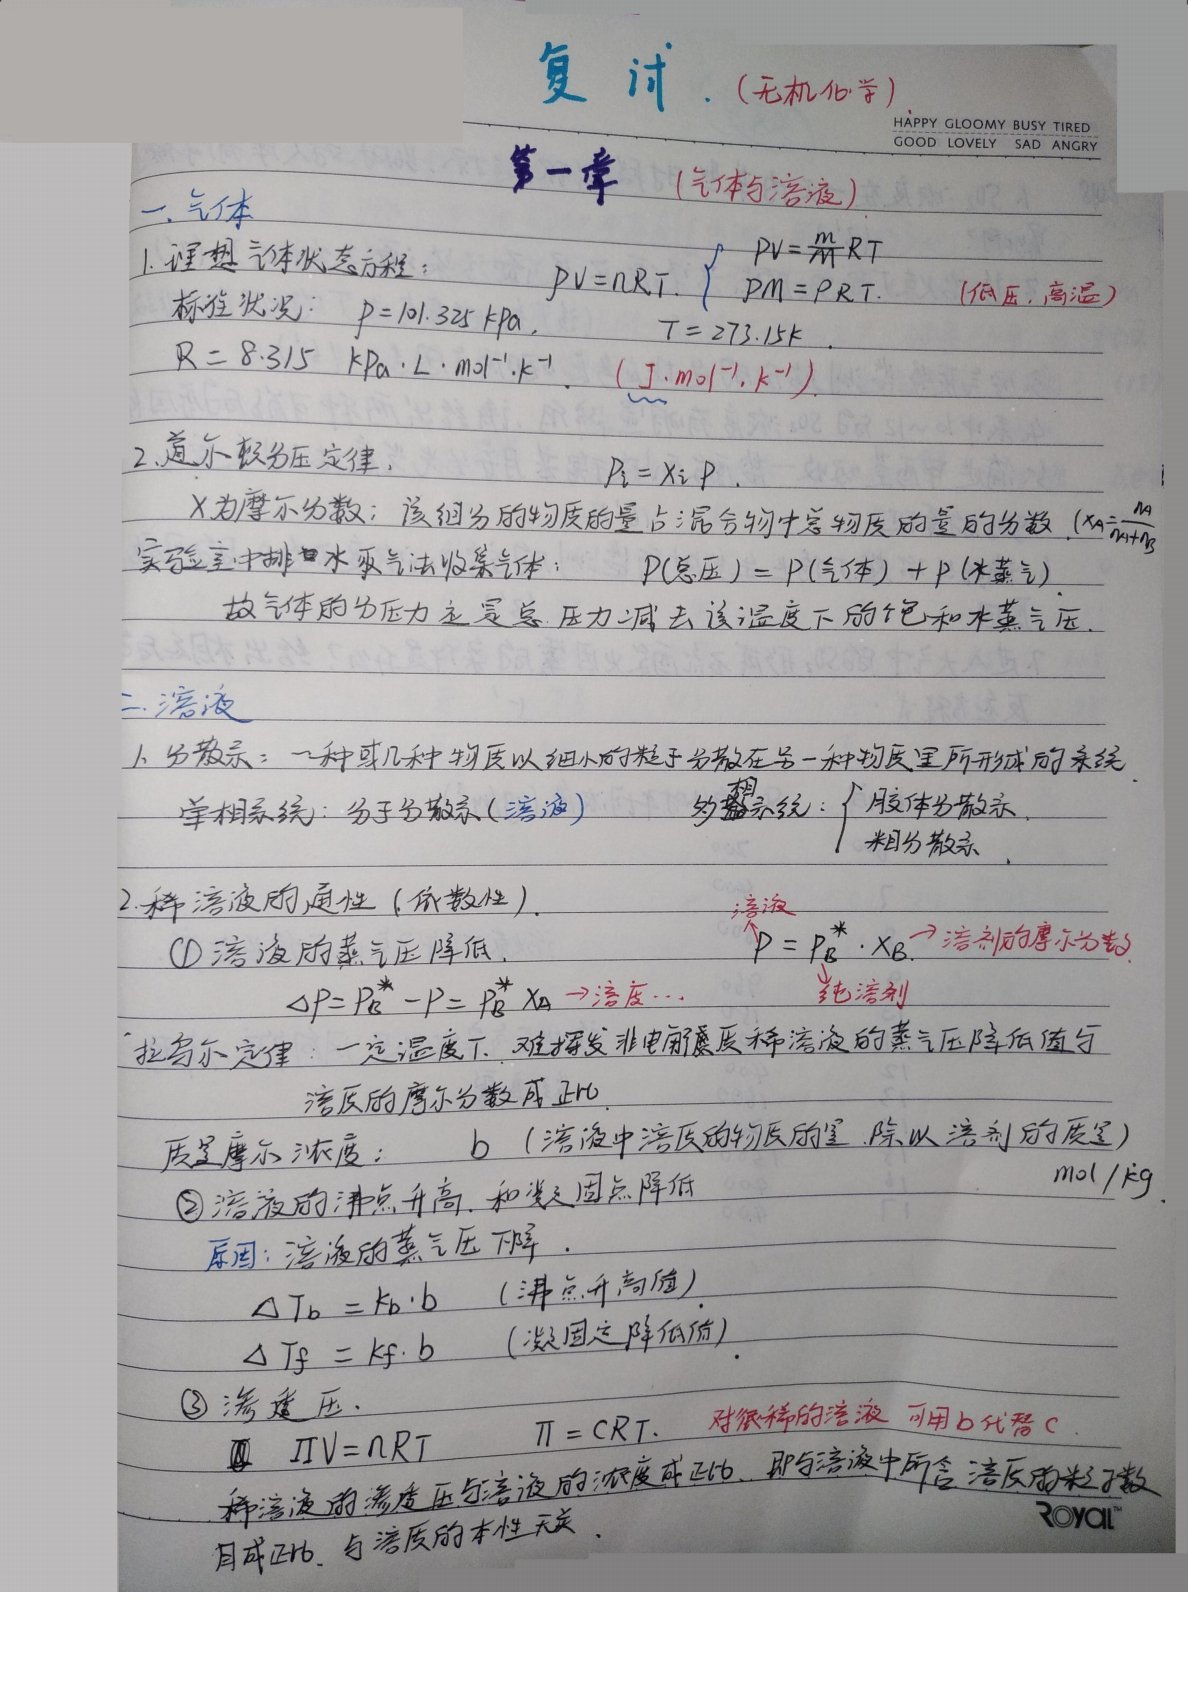 复试.(无机化学)
HAPPY GLOOMY BUSY TIRED
GOOD LOVELY SAD ANGRY
第一章 (气体与溶液)
一.气体
1.理想气体状态方程: PV=nRT. { PV=m/M RT
PM=ρRT. (低压,高温)
标准状况: P=101.325 kPa, T=273.15K.
R=8.315 kPa·L·mol⁻¹·K⁻¹. (J·mol⁻¹·K⁻¹)
2.道尔顿分压定律. Pi=xi P.
X为摩尔分数: 该组分的物质的量占混合物中总物质的量的分数.(xA=nA/(nA+nB)
实验室中排水取气法收集气体: P(总压)=P(气体)+P(水蒸气)
故气体的分压力应是总压力减去该温度下的饱和水蒸气压.
二.溶液
1.分散系: 一种或几种物质以细小的粒子分散在另一种物质里所形成的系统.
单相系统: 分子分散系(溶液) 多相系统: { 胶体分散系.
粗分散系.
2.稀溶液的通性(依数性).
①溶液的蒸气压降低. P=PB*·XB. →溶剂的摩尔分数.
溶液
纯溶剂
△P=PB*-P=PB* XA →溶质...
拉乌尔定律: 一定温度下,难挥发非电解质稀溶液的蒸气压降低值与
溶质的摩尔分数成正比.
质量摩尔浓度: b (溶液中溶质的物质的量 除以溶剂的质量)
mol/kg.
②溶液的沸点升高,和凝固点降低
原因: 溶液的蒸气压下降.
△Tb=Kb·b (沸点升高值).
△Tf=Kf·b (凝固点降低值).
③渗透压.
ΠV=nRT Π=CRT. 对很稀的溶液 可用b代替C.
稀溶液的渗透压与溶液的浓度成正比.即与溶液中所含溶质的粒子数
目成正比.与溶质的本性无关.
ROYAL™